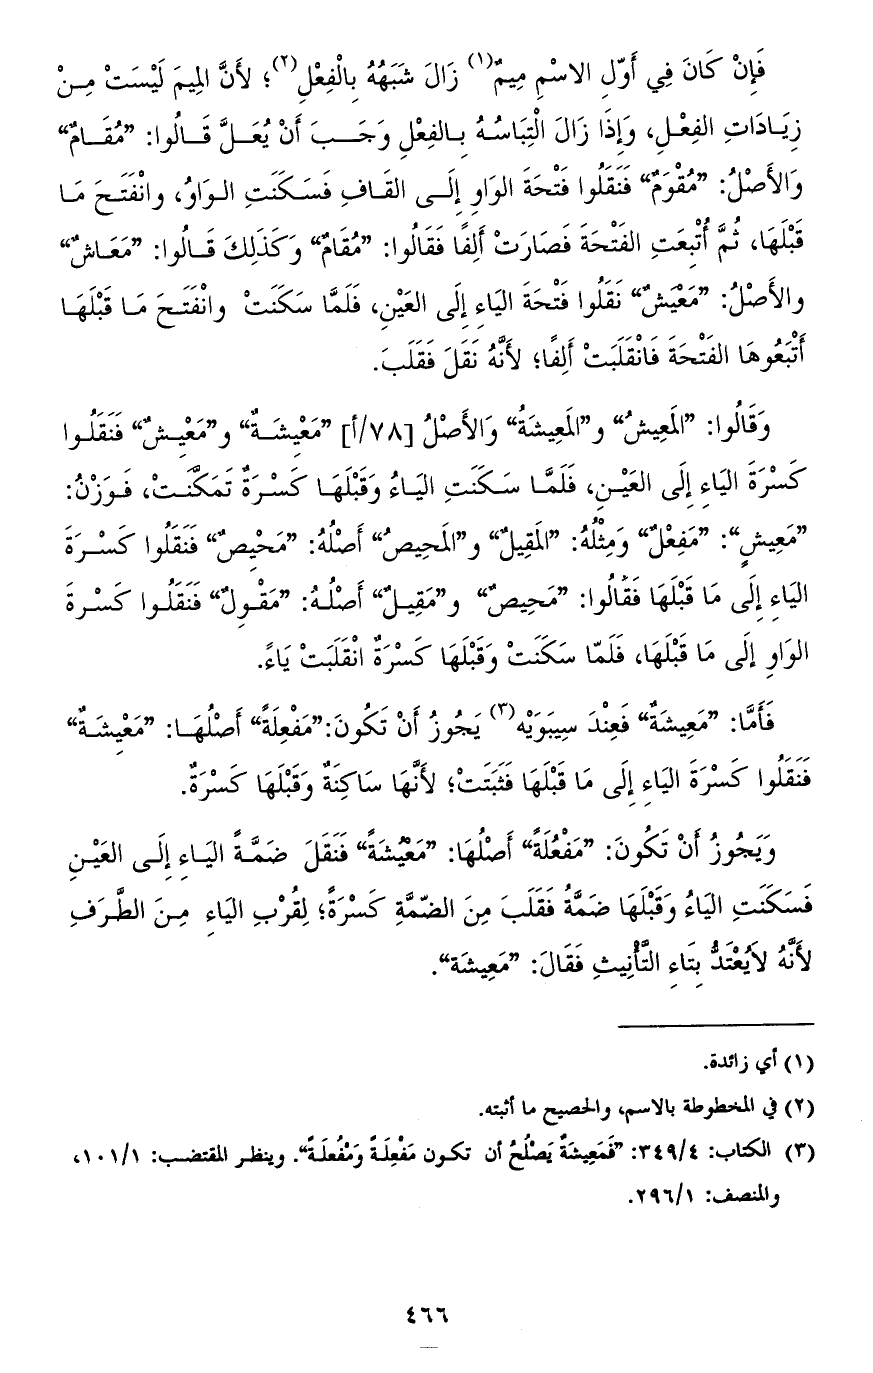 فَإِنْ كَانَ فِي أَوّلِ الاسْمِ مِيمٌ(١) زَالَ شَبَهُهُ بِالْفِعْلِ(٢)؛ لأَنَّ المِيمَ لَيْسَتْ مِنْ
زِيَادَاتِ الفِعْلِ، وَإِذَا زَالَ الْتِبَاسُهُ بِالفِعْلِ وَجَبَ أَنْ يُعَلَّ قَالُوا: ”مُقَامٌ“
وَالأَصْلُ: ”مُقْوَمٌ“ فَنَقَلُوا فَتْحَةَ الوَاوِ إِلَى القَافِ فَسَكَنَتِ الوَاوُ، وانْفَتَحَ مَا
قَبْلَهَا، ثُمَّ أُتْبِعَتِ الفَتْحَةَ فَصَارَتْ أَلِفًا فَقَالُوا: ”مُقَامٌ“ وَكَذَلِكَ قَالُوا: ”مَعَاشٌ“
والأَصْلُ: ”مَعْيَشٌ“ نَقَلُوا فَتْحَةَ اليَاءِ إِلَى العَيْنِ، فَلَمَّا سَكَنَتْ وانْفَتَحَ مَا قَبْلَهَا
أَتْبَعُوهَا الفَتْحَةَ فَانْقَلَبَتْ أَلِفًا؛ لأَنَّهُ نَقَلَ فَقَلَبَ.
وَقَالُوا: ”المَعِيشُ“ و”المَعِيشَةُ“ وَالأَصْلُ [٧٨/أ] ”مَعْيِشَةٌ“ و”مَعْيِشٌ“ فَنَقَلُوا
كَسْرَةَ اليَاءِ إِلَى العَيْنِ، فَلَمَّا سَكَنَتِ اليَاءُ وَقَبْلَهَا كَسْرَةٌ تَمَكَّنَتْ، فَوَزْنُ:
”مَعِيشٍ“: ”مَفْعِلٌ“ وَمِثْلُهُ: ”المَقِيلُ“ و”المَحِيصُ“ أَصْلُهُ: ”مَحْيِصٌ“ فَنَقَلُوا كَسْرَةَ
اليَاءِ إِلَى مَا قَبْلَهَا فَقَالُوا: ”مَحِيصٌ“ و”مَقِيلٌ“ أَصْلُهُ: ”مَقْوِلٌ“ فَنَقَلُوا كَسْرَةَ
الوَاوِ إِلَى مَا قَبْلَهَا، فَلَمّا سَكَنَتْ وَقَبْلَهَا كَسْرَةٌ انْقَلَبَتْ يَاءً.
فَأَمَّا: ”مَعِيشَةٌ“ فَعِنْدَ سِيبَوَيْه(٣) يَجُوزُ أَنْ تَكُونَ:”مَفْعِلَةً“ أَصْلُهَا: ”مَعْيِشَةٌ“
فَنَقَلُوا كَسْرَةَ اليَاءِ إِلَى مَا قَبْلَهَا فَثَبَتَتْ؛ لأَنَّهَا سَاكِنَةٌ وَقَبْلَهَا كَسْرَةٌ.
وَيَجُوزُ أَنْ تَكُونَ: ”مَفْعُلَةً“ أَصْلُهَا: ”مَعْيُشَةً“ فَنَقَلَ ضَمَّةَ اليَاءِ إِلَى العَيْنِ
فَسَكَنَتِ اليَاءُ وَقَبْلَهَا ضَمَّةٌ فَقَلَبَ مِنَ الضّمَّةِ كَسْرَةً؛ لِقُرْبِ اليَاءِ مِنَ الطَّرَفِ
لأَنَّهُ لاَيُعْتَدُّ بِتَاءِ التَّأْنِيثِ فَقَالَ: ”مَعِيشَة“.
(١) أي زائدة.
(٢) في المخطوطة بالاسم، والحصيح ما أثبته.
(٣) الكتاب: ٣٤٩/٤: ”فَمَعِيشَةٌ يَصْلُحُ أن تكون مَفْعِلَةً وَمَفْعُلَةً“. وينظر المقتضب: ١٠١/١،
والمنصف: ٢٩٦/١.
٤٦٦